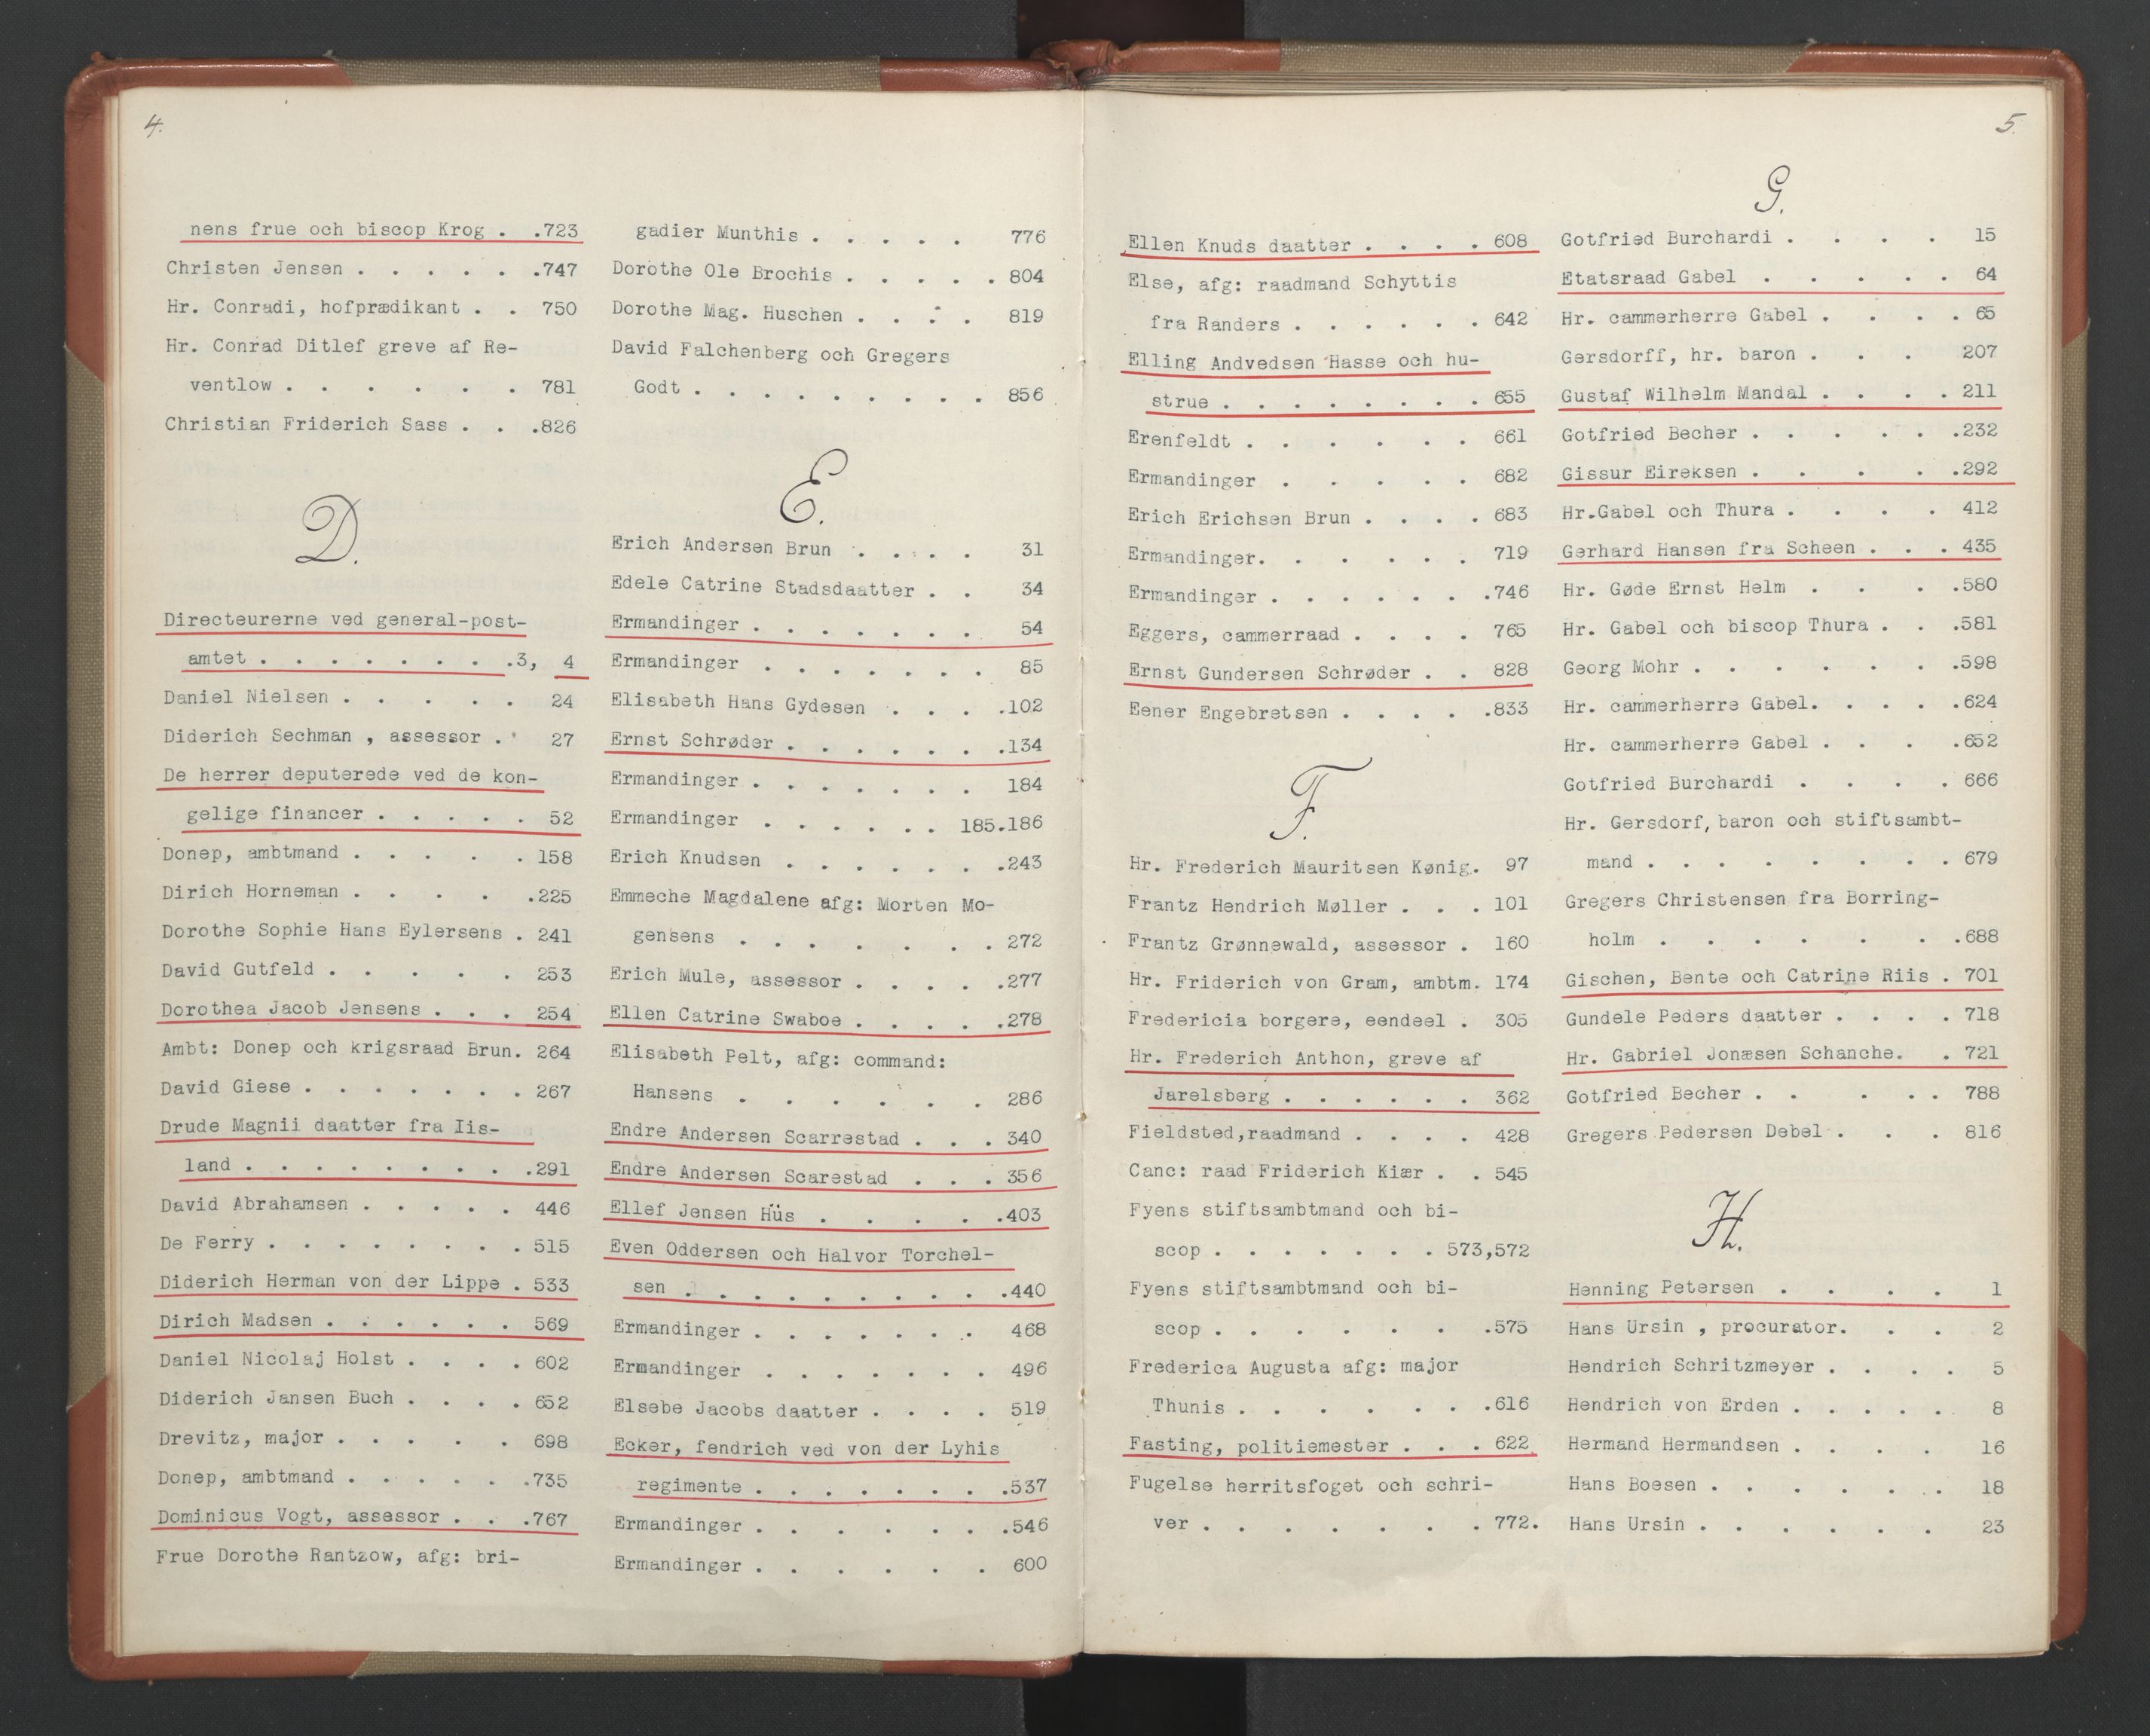 4.
nens frue och biscop Krog . .723
Christen Jensen . . . . . .747
Hr. Conradi, hofprædikant . . 750
Hr. Conrad Ditlef greve af Re-
ventlow . . . . . . . 781
Christian Friderich Sass . . .826
D.
Directeurerne ved general-post-
amtet . . . . . . . .3, 4
Daniel Nielsen . . . . . 24
Diderich Sechman , assessor . 27
De herrer deputerede ved de kon-
gelige financer . . . . . 52
Donep, ambtmand . . . . . 158
Dirich Horneman . . . . .225
Dorothe Sophie Hans Eylersens . 241
David Gutfeld . . . . . 253
Dorothea Jacob Jensens . . . 254
Ambt: Donep och krigsraad Brun. 264
David Giese . . . . . . . 267
Drude Magnii daatter fra Iis-
land . . . . . . . . .291
David Abrahamsen . . . . . 446
De Ferry . . . . . . . . 515
Diderich Herman von der Lippe . 533
Dirich Madsen . . . . . . 569
Daniel Nicolaj Holst . . . . 602
Diderich Jansen Buch . . . . 652
Drevitz, major . . . . . 698
Donep, ambtmand . . . . . .735
Dominicus Vogt, assessor . . .767
Frue Dorothe Rantzow, afg: bri-
gadier Munthis . . . . . 776
Dorothe Ole Brochis . . . . . 804
Dorothe Mag. Huschen . . . . 819
David Falchenberg och Gregers
Godt . . . . . . . . . 856
E.
Erich Andersen Brun . . . . 31
Edele Catrine Stadsdaatter . . 34
Ermandinger . . . . . . . 54
Ermandinger . . . . . . . 85
Elisabeth Hans Gydesen . . . .102
Ernst Schrøder . . . . . . .134
Ermandinger . . . . . . . 184
Ermandinger . . . . . . 185.186
Erich Knudsen . . . . . . .243
Emmeche Magdalene afg: Morten Mo-
gensens . . . . . . . . 272
Erich Mule, assessor . . . . .277
Ellen Catrine Swaboe . . . . .278
Elisabeth Pelt, afg: command:
Hansens . . . . . . . 286
Endre Andersen Scarrestad . . . 340
Endre Andersen Scarestad . . . 356
Ellef Jensen Hüs . . . . .403
Even Oddersen och Halvor Torchel-
sen . . . . . . . . . .440
Ermandinger . . . . . . . 468
Ermandinger . . . . . . . 496
Elsebe Jacobs daatter . . . . 519
Ecker, fendrich ved von der Lyhis
regimente . . . . . . . .537
Ermandinger . . . . . . .546
Ermandinger . . . . . . 600
5.
Ellen Knuds daatter . . . . 608
Else, afg: raadmand Schyttis
fra Randers . . . . . . 642
Elling Andvedsen Hasse och hu-
strue . . . . . . . . 655
Erenfeldt . . . . . . 661
Ermandinger . . . . . 682
Erich Erichsen Brun . . . . 683
Ermandinger. . . . . . 719
Ermandinger . . . . . . .746
Eggers, cammerraad . . . . 765
Ernst Gundersen Schrøder . . 828
Eener Engebretsen . . . . .833
F.
Hr. Frederich Mauritsen Kønig. 97
Frantz Hendrich Møller . . . 101
Frantz Grønnewald, assessor . 160
Hr. Friderich von Gram, ambtm. 174
Fredericia borgere, eendeel . 305
Hr. Frederich Anthon, greve af
Jarelsberg . . . . . . 362
Fieldsted,raadmand . . . . 428
Canc: raad Friderich Kiær . . 545
Fyens stiftsambtmand och bi-
scop . . . . . . . 573,572
Fyens stiftsambtmand och bi-
scop . . . . . . .575
Frederica Augusta afg: major
Thunis . . . . . . .616
Fasting, politiemester . . . 622
Fugelse herritsfoget och schri-
ver . . . . . . . . 772.
G.
Gotfried Burchardi . . . . 15
Etatsraad Gabel . . . . . 64
Hr. cammerherre Gabel . . . . 65
Gersdorff, hr. baron . . . 207
Gustaf Wilhelm Mandal . . . . 211
Gotfried Becher . . . . . .232
Gissur Eireksen . . . . .292
Hr.Gabel och Thura . . . . 412
Gerhard Hansen fra Scheen . . . 435
Hr. Gøde Ernst Helm . . . .580
Hr. Gabel och biscop Thura . . .581
Georg Mohr . . . . . . .598
Hr. cammerherre Gabel. . . . .624
Hr. cammerherre Gabel . . . .652
Gotfried Burchardi . . . . 666
Hr. Gersdorf, baron och stiftsambt-
mand . . . . . . . . . 679
Gregers Christensen fra Borring-
holm . . . . . . . .688
Gischen, Bente och Catrine Riis . 701
Gundele Peders daatter . . . . 718
Hr. Gabriel Jonæsen Schanche. . 721
Gotfried Becher . . . . . 788
Gregers Pedersen Debel . . . 816
H.
Henning Petersen . . . . 1
Hans Ursin , procurator. . . 2
Hendrich Schritzmeyer . . . . 5
Hendrich von Erden . . . . . 8
Hermand Hermandsen . . . . 16
Hans Boesen . . . . . . 18
Hans Ursin . . . . . . 23